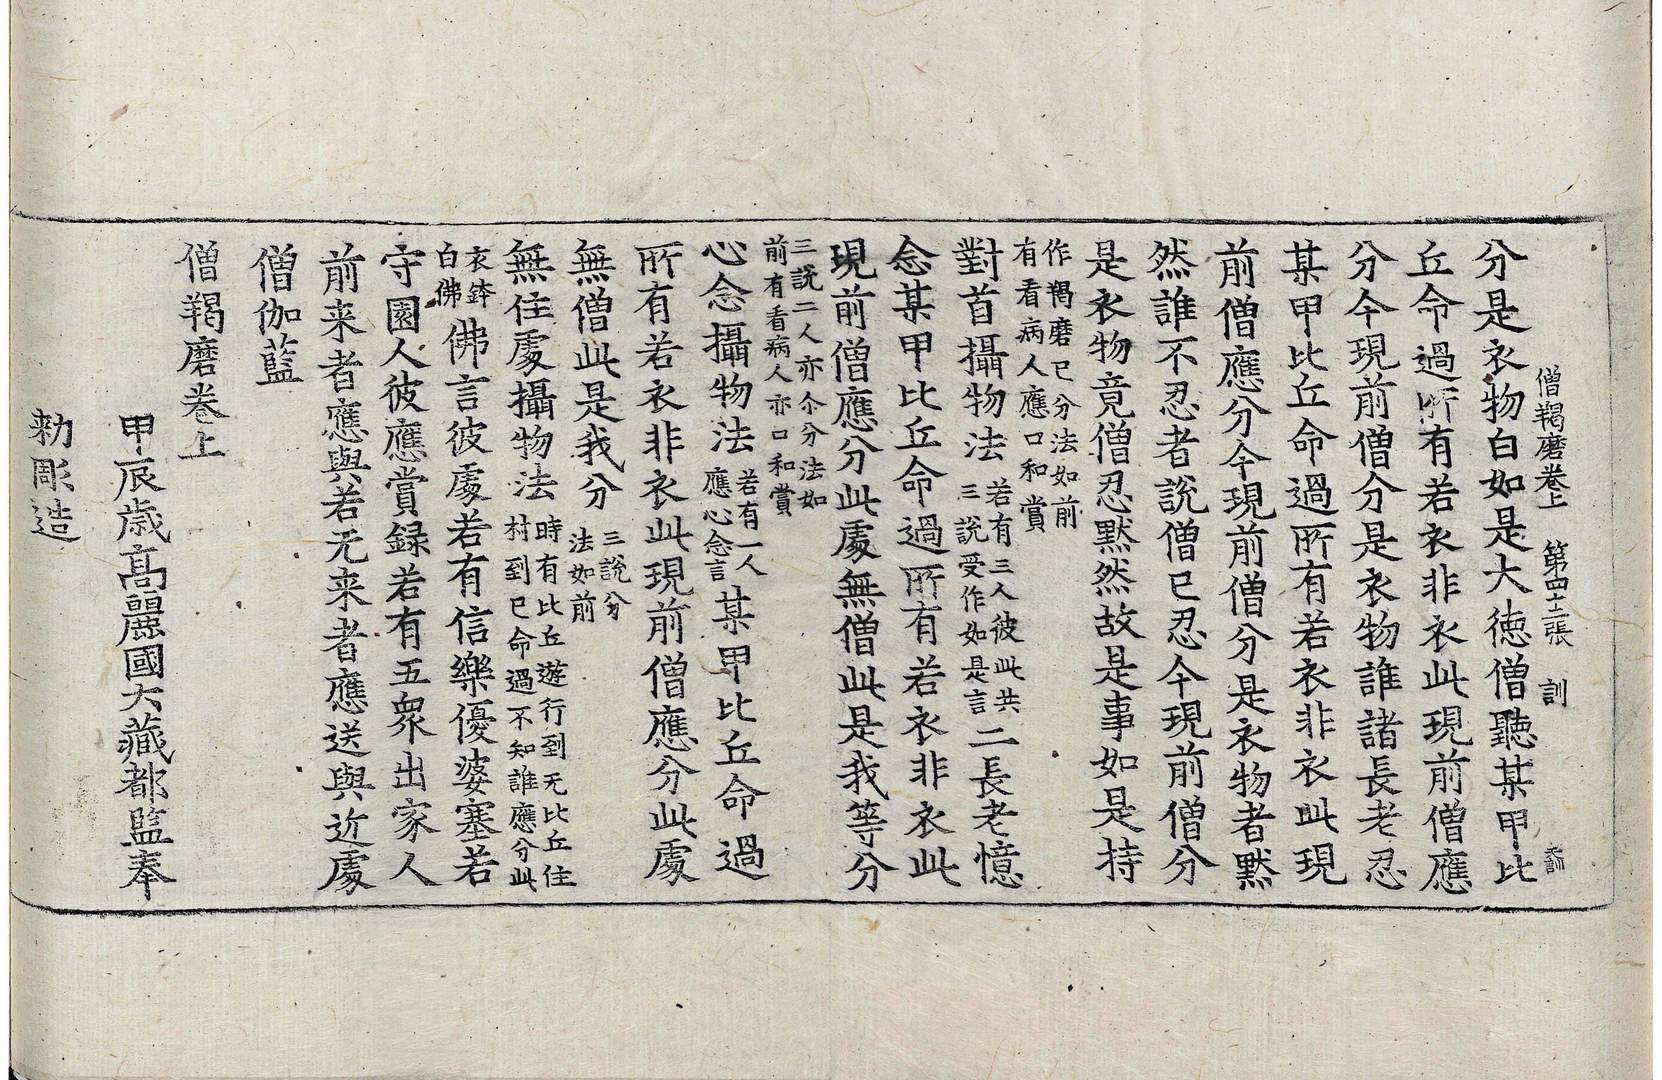 僧羯磨卷上　第四十三張　訓
分是衣物白如是大徳僧聽某甲比
丘命過所有若衣非衣此現前僧應
分今現前僧分是衣物誰諸長老忍
某甲比丘命過所有若衣非衣此現
前僧應分今現前僧分是衣物者默
然誰不忍者說僧已忍今現前僧分
是衣物竟僧忍默然故是事如是持
作羯磨已分法如前
有看病人應口和賞
對首攝物法
若有三人彼此共
三說受作如是言
二長老憶
念某甲比丘命過所有若衣非衣此
現前僧應分此處無僧此是我等分
三說二人亦尒分法如
前有看病人亦口和賞
心念攝物法
若有一人
應心念言
某甲比丘命過
所有若衣非衣此現前僧應分此處
無僧此是我分
三說分
法如前
無住處攝物法
時有比丘遊行到无比丘住
村到已命過不知誰應分此
衣鉢
白佛
佛言彼處若有信樂優婆塞若
守園人彼應賞録若有五衆出家人
前来者應與若无来者應送與近處
僧伽藍
僧羯磨卷上
甲辰歳高麗國大藏都監奉
勅彫造